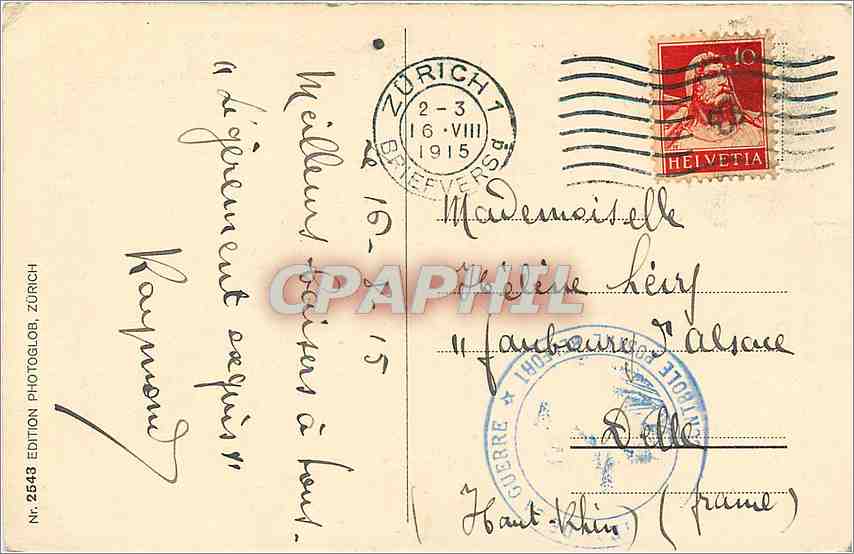 Le 16-8-15
Meilleurs baisers à tous.
" Légèrement
Raymond
Nr. 2543 EDITION PHOTOGLOB, ZÜRICH
ZÜRICH 1
2-3
16·VIII
1915
BRIEFVERSd
10
HELVETIA
Mademoiselle
Hélène Lévy
" Faubourg d'Alsace
Delle
(Haut-Rhin) (france)
GUERRE ★
CPAPHIL